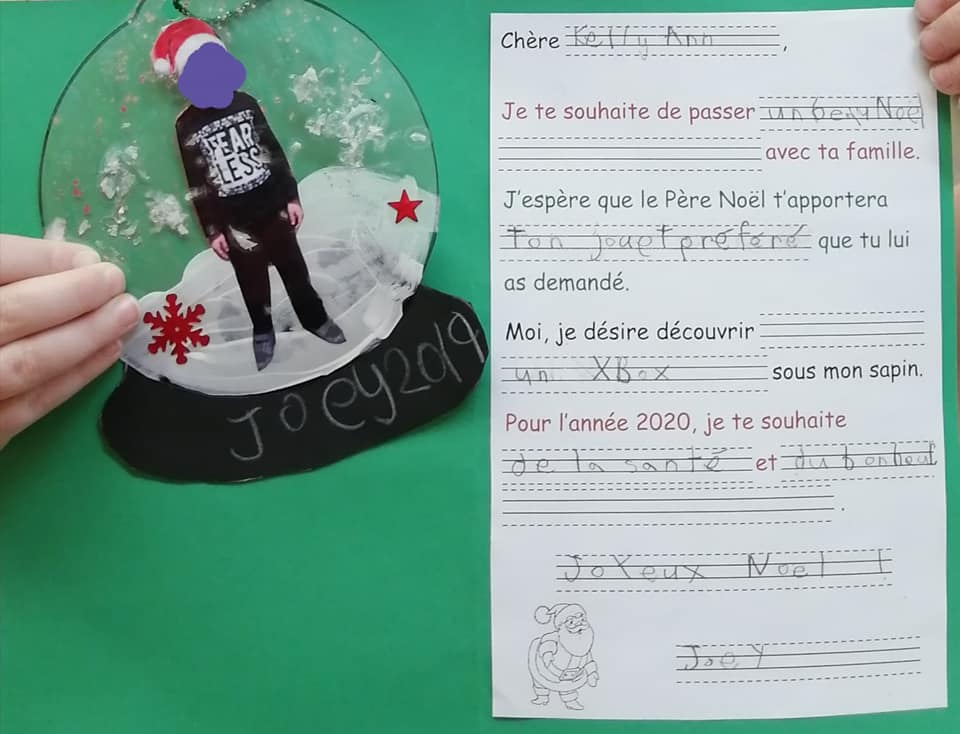 FEAR
LESS
JOEY2019
Chère Kelly Ann,
Je te souhaite de passer un beau Noël
avec ta famille.
J'espère que le Père Noël t'apportera
ton jouet préféré que tu lui
as demandé.
Moi, je désire découvrir
un XBox sous mon sapin.
Pour l'année 2020, je te souhaite
de la santé et du bonheur
.
Joyeux Noel !
Joey